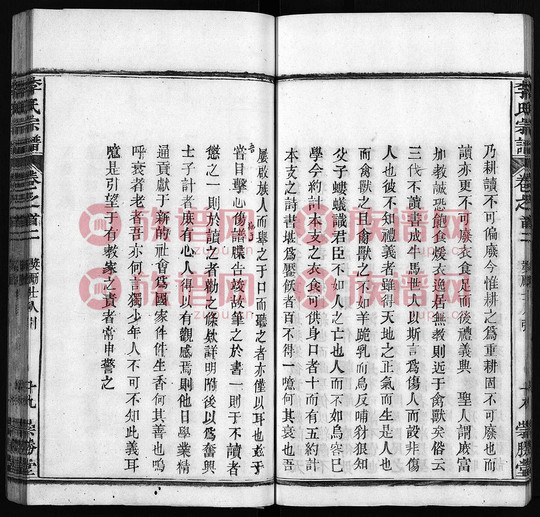 乃耕讀不可偏廢今惟耕之爲重耕固不可廢也而
讀亦更不可廢衣食足而後禮義興 聖人謂庶富
加教誠恐飽食煖衣逸居無教則近于禽獸矣俗云
三代不讀書成牛馬世人以斯言爲傷人而設非傷
人也彼不知禮義者雖得天地之正氣而生是人也
而禽獸之且禽獸之不如羊跪乳而烏反哺豺狼知
父子螻蟻識君臣不如人之亡也人而不如鳥容已
學今約計本支之衣食可供身口者十而有五約計
本支之詩書堪爲饜飫者百不得一噫何其衰也吾
屢啟族人而舉之于口而聽之者亦僅以耳也茲于
當目擊心傷譜牒告竣故筆之於書一則于不讀者
懲之一則於讀之者勸之條欵詳明附後以爲奮興
士子計者庶有心人得以有觀感焉則他日學業精
通貢獻于新的社會爲國家件件生香何其善也嗚
呼衰者老者吾亦何言獨少年人不可不知此義耳
噫是引望于有教家之責者常申警之
李氏宗譜
卷之首二
十九
崇勝堂
族谱网
zupu.cn